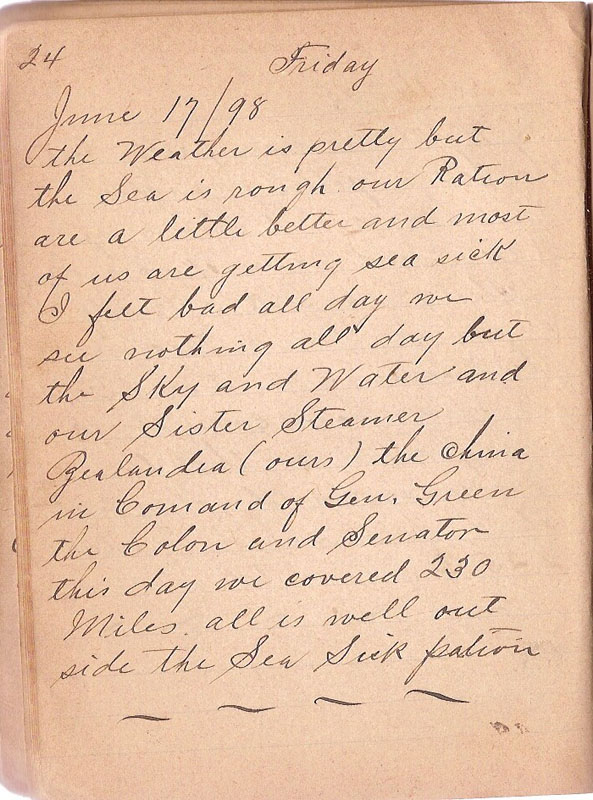 24
Friday
June 17/98
the Weather is pretty but
the Sea is rough. our Ration
are a little better and most
of us are getting sea sick
I felt bad all day we
see nothing all day but
the Sky and Water and
our Sister Steamer
Zealandia (ours) the China
in Comand of Gen. Green
the Colon and Senator
this day we covered 230
Miles. all is well out
side the Sea Sick pation